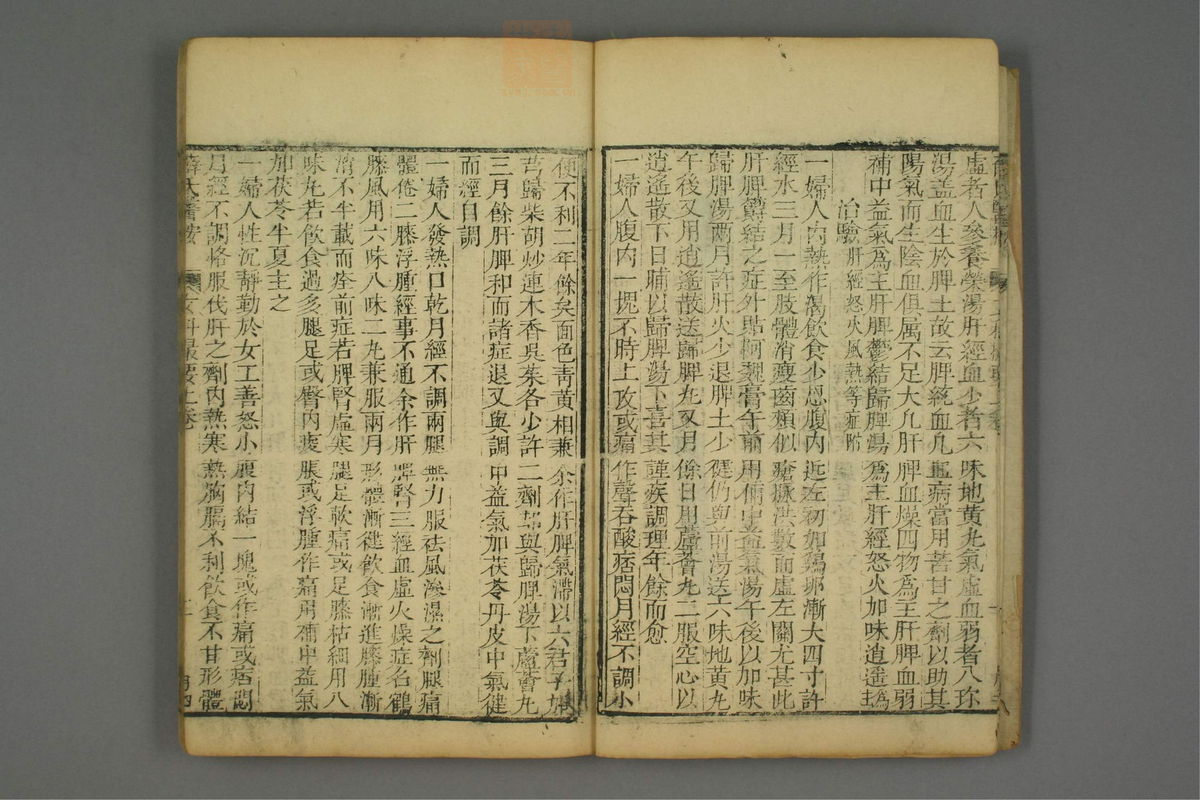 虛者人參養榮湯肝經血少者六味地黃丸氣虛血弱者八珍
湯盖血生於脾土故云脾統血凡血病當用苦甘之劑以助其
陽氣而生陰血俱属不足大凡肝脾血燥四物為主肝脾血弱
補中益氣為主肝脾鬱結歸脾湯為主肝經怒火加味逍遙為
治驗 肝經怒火風熱等症附
一婦人内熱作渴飲食少思腹内近左初如鷄卵漸大四寸許
經水三月一至肢體消瘦齒頰似瘡脉洪數而虛左關尤甚此
肝脾鬱結之症外貼阿魏膏午前用補中益氣湯午後以加味
歸脾湯兩月許肝火少退脾土少健仍與前湯送六味地黃丸
午後又用逍遙散送歸脾丸又月餘日用蘆薈丸二服空心以
逍遙散下日晡以歸脾湯下喜其謹疾調理年餘而愈
一婦人腹内一塊不時上攻或痛作聲吞酸痞悶月經不調小
便不利二年餘矣面色青黃相兼余作肝脾氣滯以六君子加
芎歸柴胡炒連木香吳茱各少許二劑却與歸脾湯下蘆薈丸
三月餘肝脾和而諸症退又與調中益氣加茯苓丹皮中氣健
而經自調
一婦人發熱口乾月經不調兩腿無力服祛風滲濕之劑腿痛
體倦二膝浮腫經事不通余作肝脾腎三經血虛火燥症名鶴
膝風用六味八味二丸兼服兩月形體漸健飲食漸進膝腫漸
消不半載而痊前症若脾腎虛寒腿足軟痛或足膝枯細用八
味丸若飲食過多腿足或臀内痠脹或浮腫作痛用補中益氣
加茯苓半夏主之
一婦人性沉靜勤於女工善怒小腹内結一塊或作痛或痞悶
月經不調恪服伐肝之劑内熱寒熱胸膈不利飲食不甘形體
薛氏醫按 女科撮要上卷